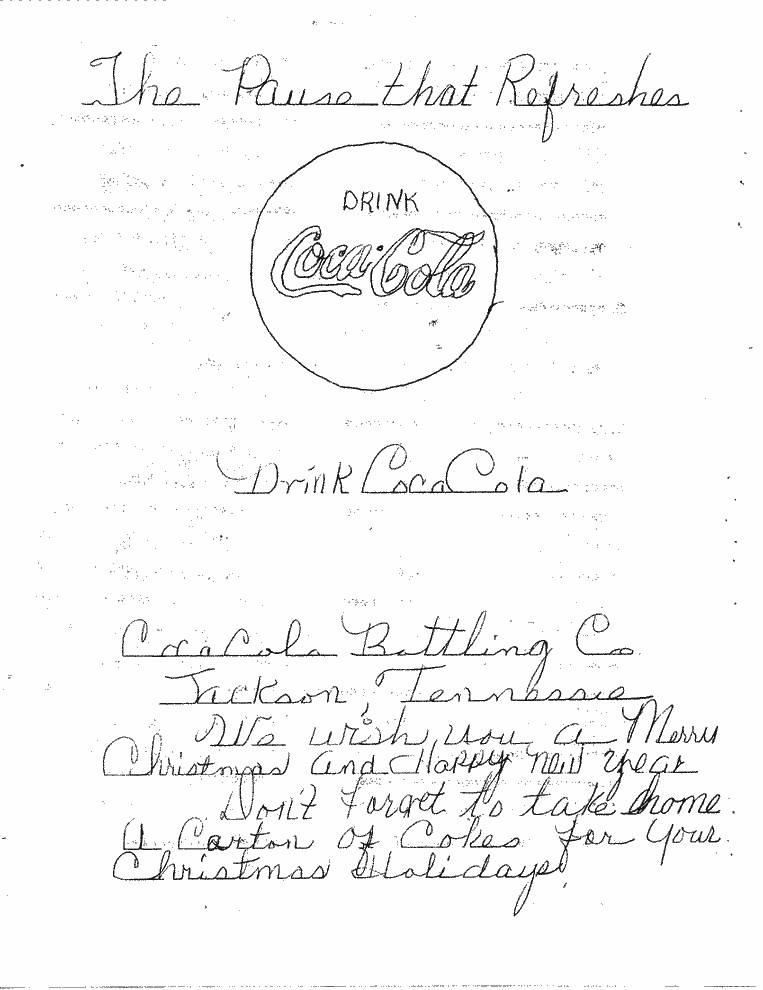 The Pause that Refreshes
DRINK
Coca-Cola
Drink Coca Cola
Coca Cola Bottling Co
Jackson, Tennessie
We wish you a Merry
Christmas and Happy new year
Don't forget to take home
a Carton of Cokes for your
Christmas Holidays!